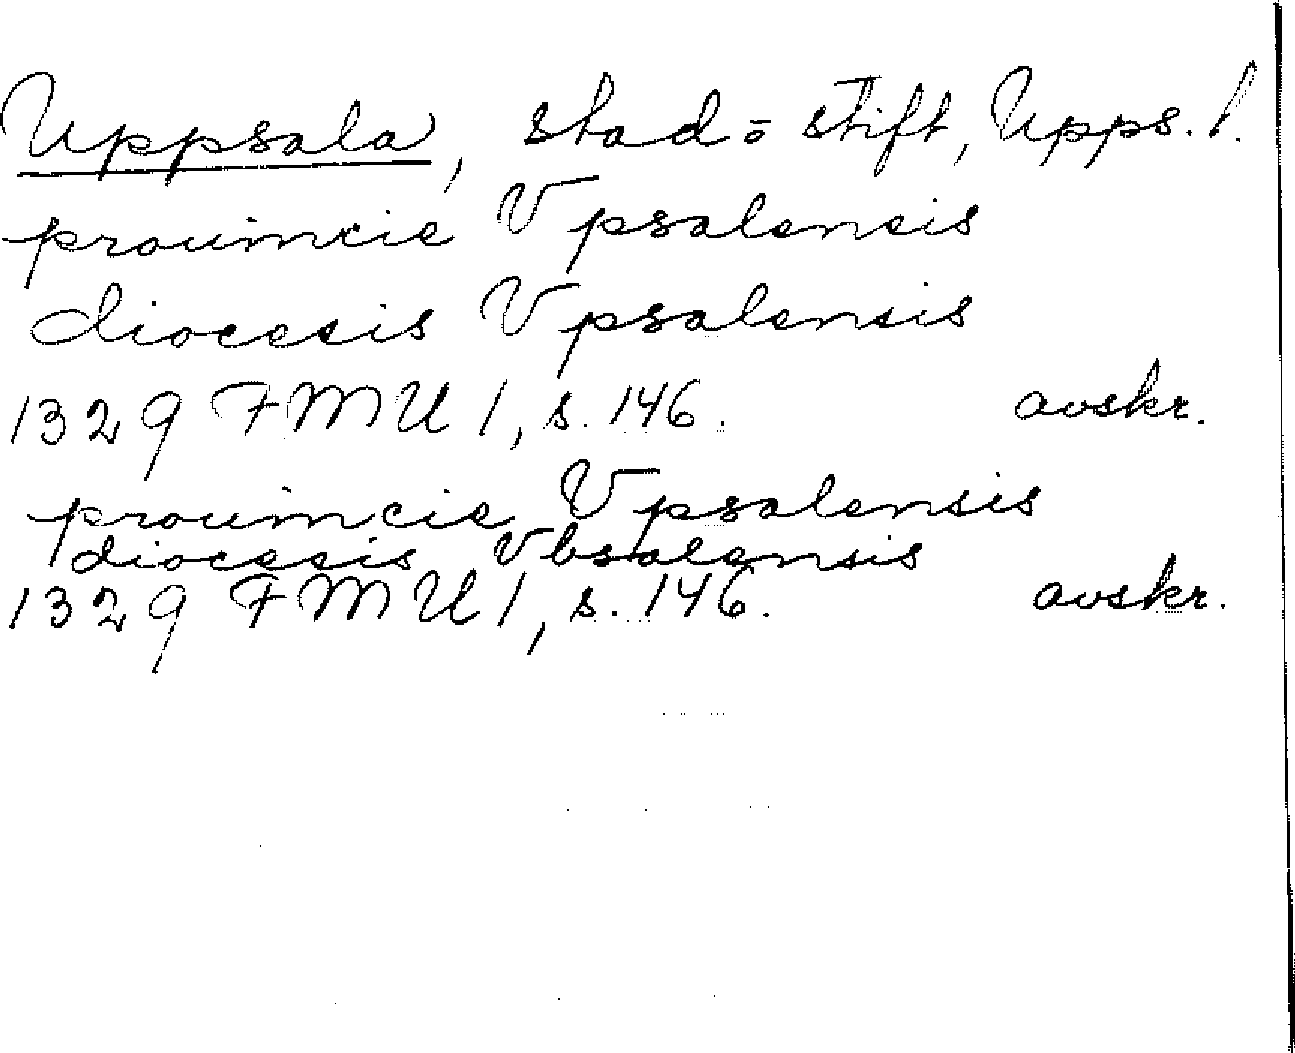 Uppsala, stad o stift, Upps. l.
prouincie Vpsalensis
diocesis Vpsalensis
1329 FMU 1, s. 146. avskr.
prouincie Vpsalensis
diocesis Vbsalensis
1329 FMU 1, s. 146. avskr.